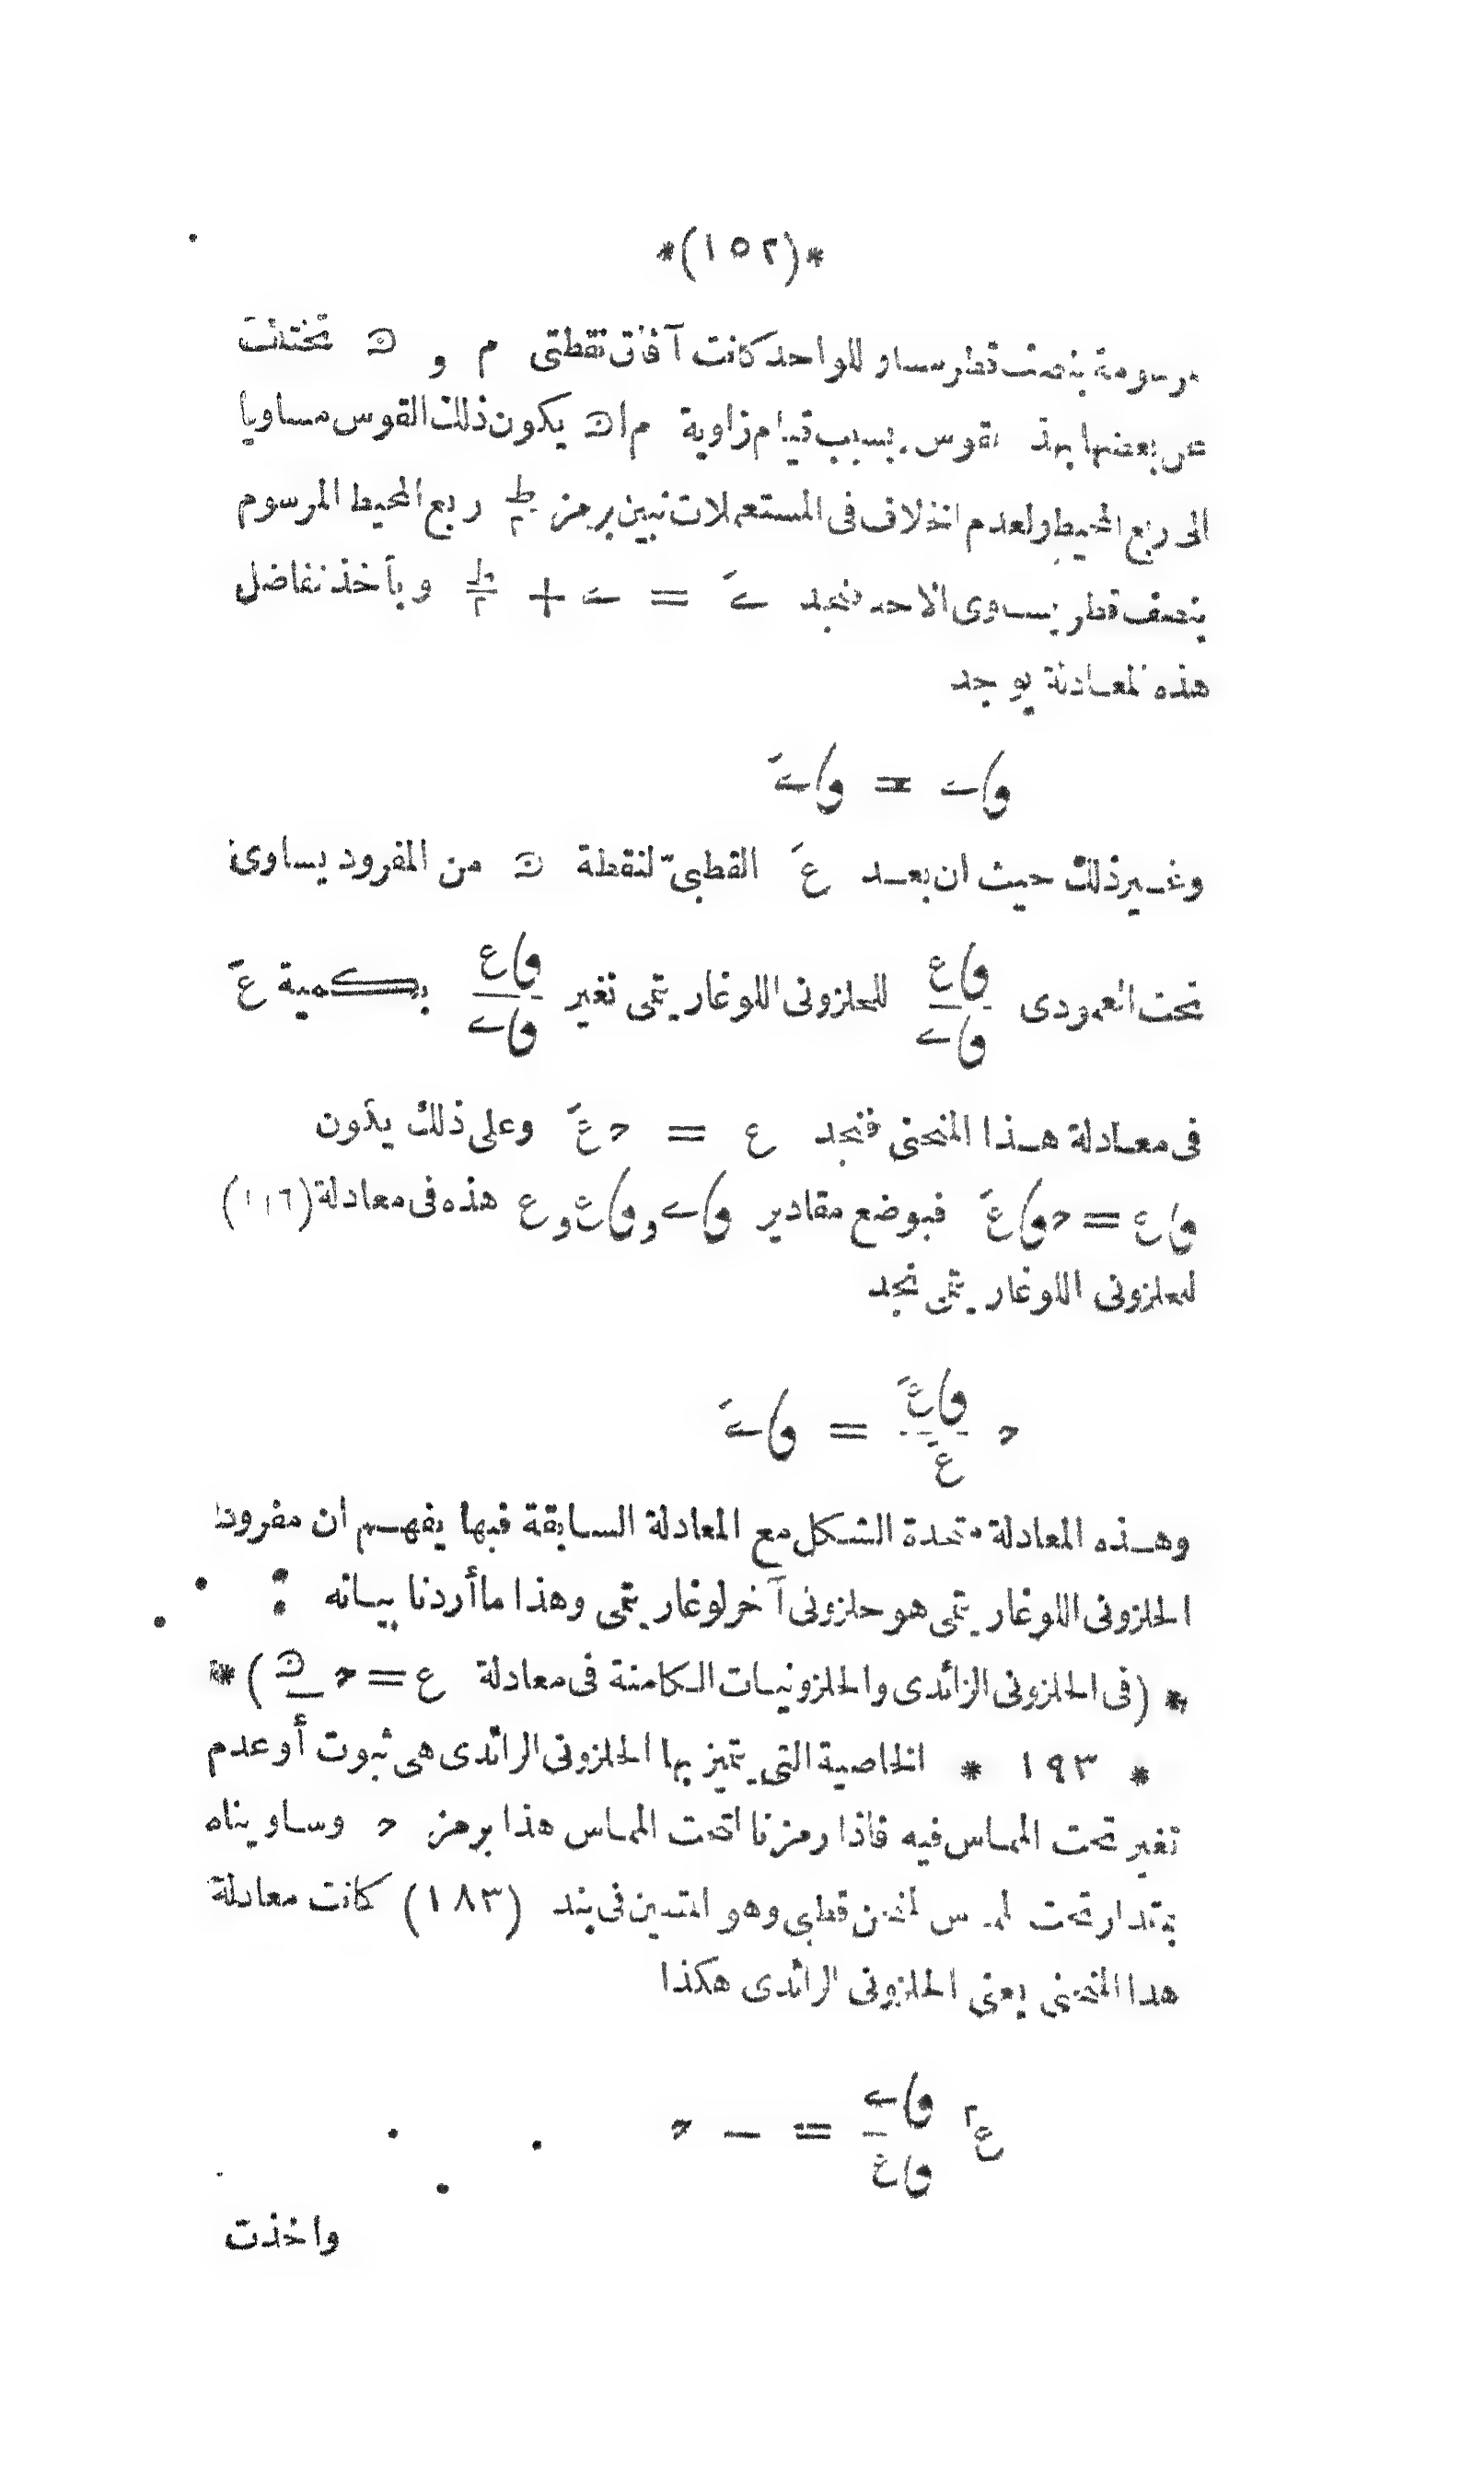 *(١٥٢)*
مرسومة بنصف قطر مساو للواحد كانت آفاق نقطتى م و ن تختلف
عن بعضها بهذا القوس بسبب قيام زاوية م ا ن يكون ذلك القوس مساويا
الى ربع المحيط ولعدم اختلاف فى المستعملات نبين برمز ط/٢ ربع المحيط المرسوم
بنصف قطر يساوى الاحد فنجد ىَ = ى + ط/٢ وبأخذ تفاضل
هذه المعادلة يوجد
وا ى = وا ىَ
وغير ذلك حيث ان بعد عَ القطبىّ لنقطة ن من المفرود يساوى
تحت العمودى وا ع/وا ى للحلزونى اللوغاريتمى تغير وا ع/وا ى بكمية عَ
فى معادلة هذا المنحنى فنجد ع = حـ عَ وعلى ذلك يكون
وا ع = حـ وا عَ فبوضع مقادير وا ى و وا ع و ع هذه فى معادلة (١١٦)
للحلزونى اللوغاريتمى نجد
حـ وا عَ/عَ = وا ىَ
وهذه المعادلة متحدة الشكل مع المعادلة السابقة فبها يفهم ان مفرود
الحلزونى اللوغاريتمى هو حلزونى آخر لوغاريتمى وهذا ما أردنا بيانه
* (فى الحلزونى الزائدى والحلزونيات الكامنة فى معادلة ع = حـ ى^ن) *
* ١٩٣ * الخاصية التى يتميز بها الحلزونى الزائدى هى ثبوت أو عدم
تغير تحت المماس فيه فاذا رمزنا لتحت المماس هذا برمز حـ وساويناه
بمقدار تحت المماس لمنحن قطبى وهو المتبين فى بند (١٨٣) كانت معادلة
هذا المنحنى يعنى الحلزونى الزائدى هكذا
ع٢ وا ى/وا ع = − حـ
واخذت